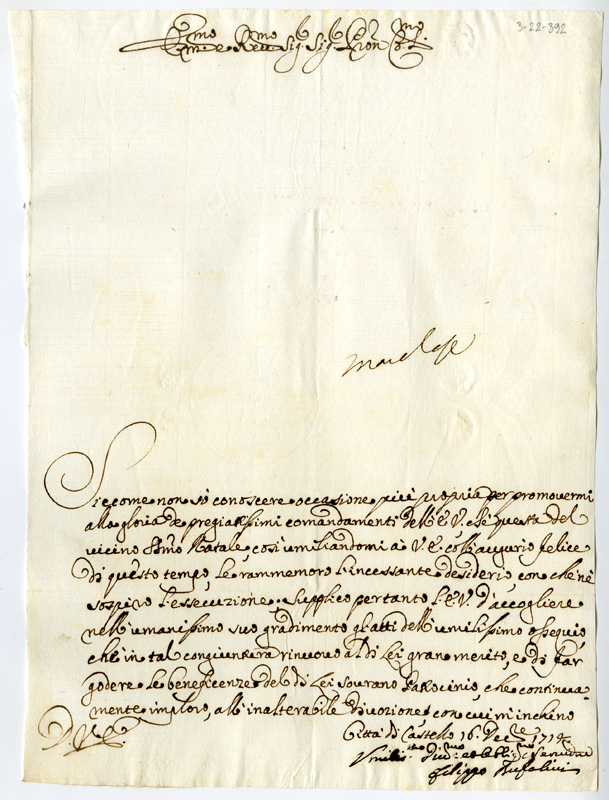 3-22-392
Em.mo e Rev.mo Sig. Sig. P̃ron Col.mo
Siccome non sò conoscere occasione più propria per promovermi
alla gloria de pregiatissimi comandamenti dell'E. V. che questa del
vicino S.tmo Natale, così umiliandomi à V. E. coll'augurio felice
di questo tempo, le rammemoro l'incessante desiderio, con che nè
sospiro l'essecuzione. Supplico pertanto l'E. V. d'accogliere
nell'umanissimo suo gradimento gl'atti dell'umilissimo ossequio,
che in tal congiuntura rinuovo al di Lei gran merito, e di far
godere le beneficenze del di Lei sovrano Patrocinio, che continua-
mente imploro, all'inalterabile divozione con cui m'inchino
D. V. E.
Città di Castello 16. Dec.re 1714
Umilis.mo Div.mo et obblig.mo Servitore
Filippo Bufalini